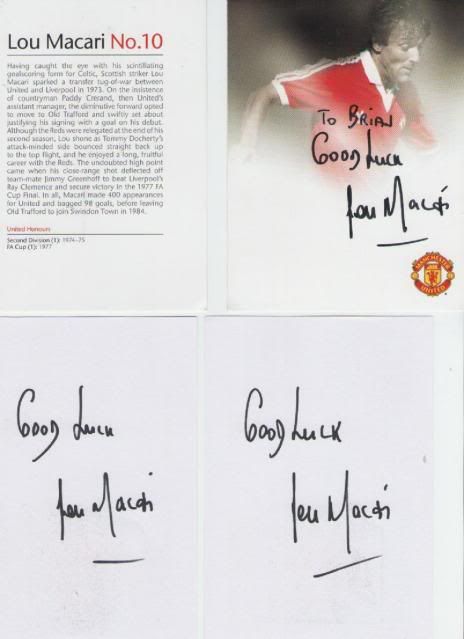 Lou Macari No.10
Having caught the eye with his scintillating
goalscoring form for Celtic, Scottish striker Lou
Macari sparked a transfer tug-of-war between
United and Liverpool in 1973. On the insistence
of countryman Paddy Crerand, then United's
assistant manager, the diminutive forward opted
to move to Old Trafford and swiftly set about
justifying his signing with a goal on his debut.
Although the Reds were relegated at the end of his
second season, Lou shone as Tommy Docherty's
attack-minded side bounced straight back up
to the top flight, and he enjoyed a long, fruitful
career with the Reds. The undoubted high point
came when his close-range shot deflected off
team-mate Jimmy Greenhoff to beat Liverpool's
Ray Clemence and secure victory in the 1977 FA
Cup Final. In all, Macari made 400 appearances
for United and bagged 98 goals, before leaving
Old Trafford to join Swindon Town in 1984.
United Honours
Second Division (1): 1974-75
FA Cup (1): 1977
TO BRIAN
GOOD LUCK
Lou Macari
MANCHESTER
UNITED
GOOD LUCK
Lou Macari
GOOD LUCK
Lou Macari